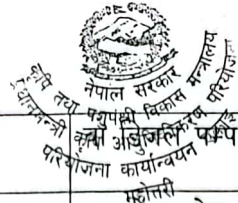 नेपाल सरकार
कृषि तथा पशुपन्छी विकास मन्त्रालय
प्रधानमन्त्री कृषि आधुनिकीकरण परियोजना
परियोजना कार्यान्वयन
महोत्तरी